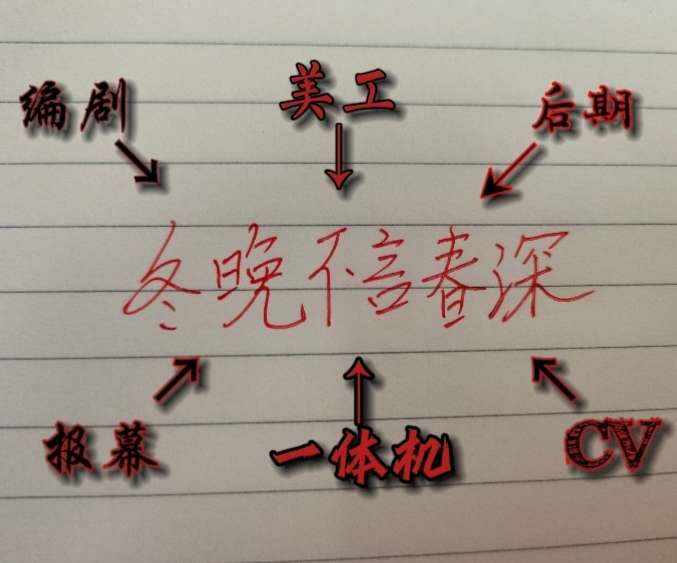 编剧 美工 后期
冬晚不言春深
报幕 一体机 CV